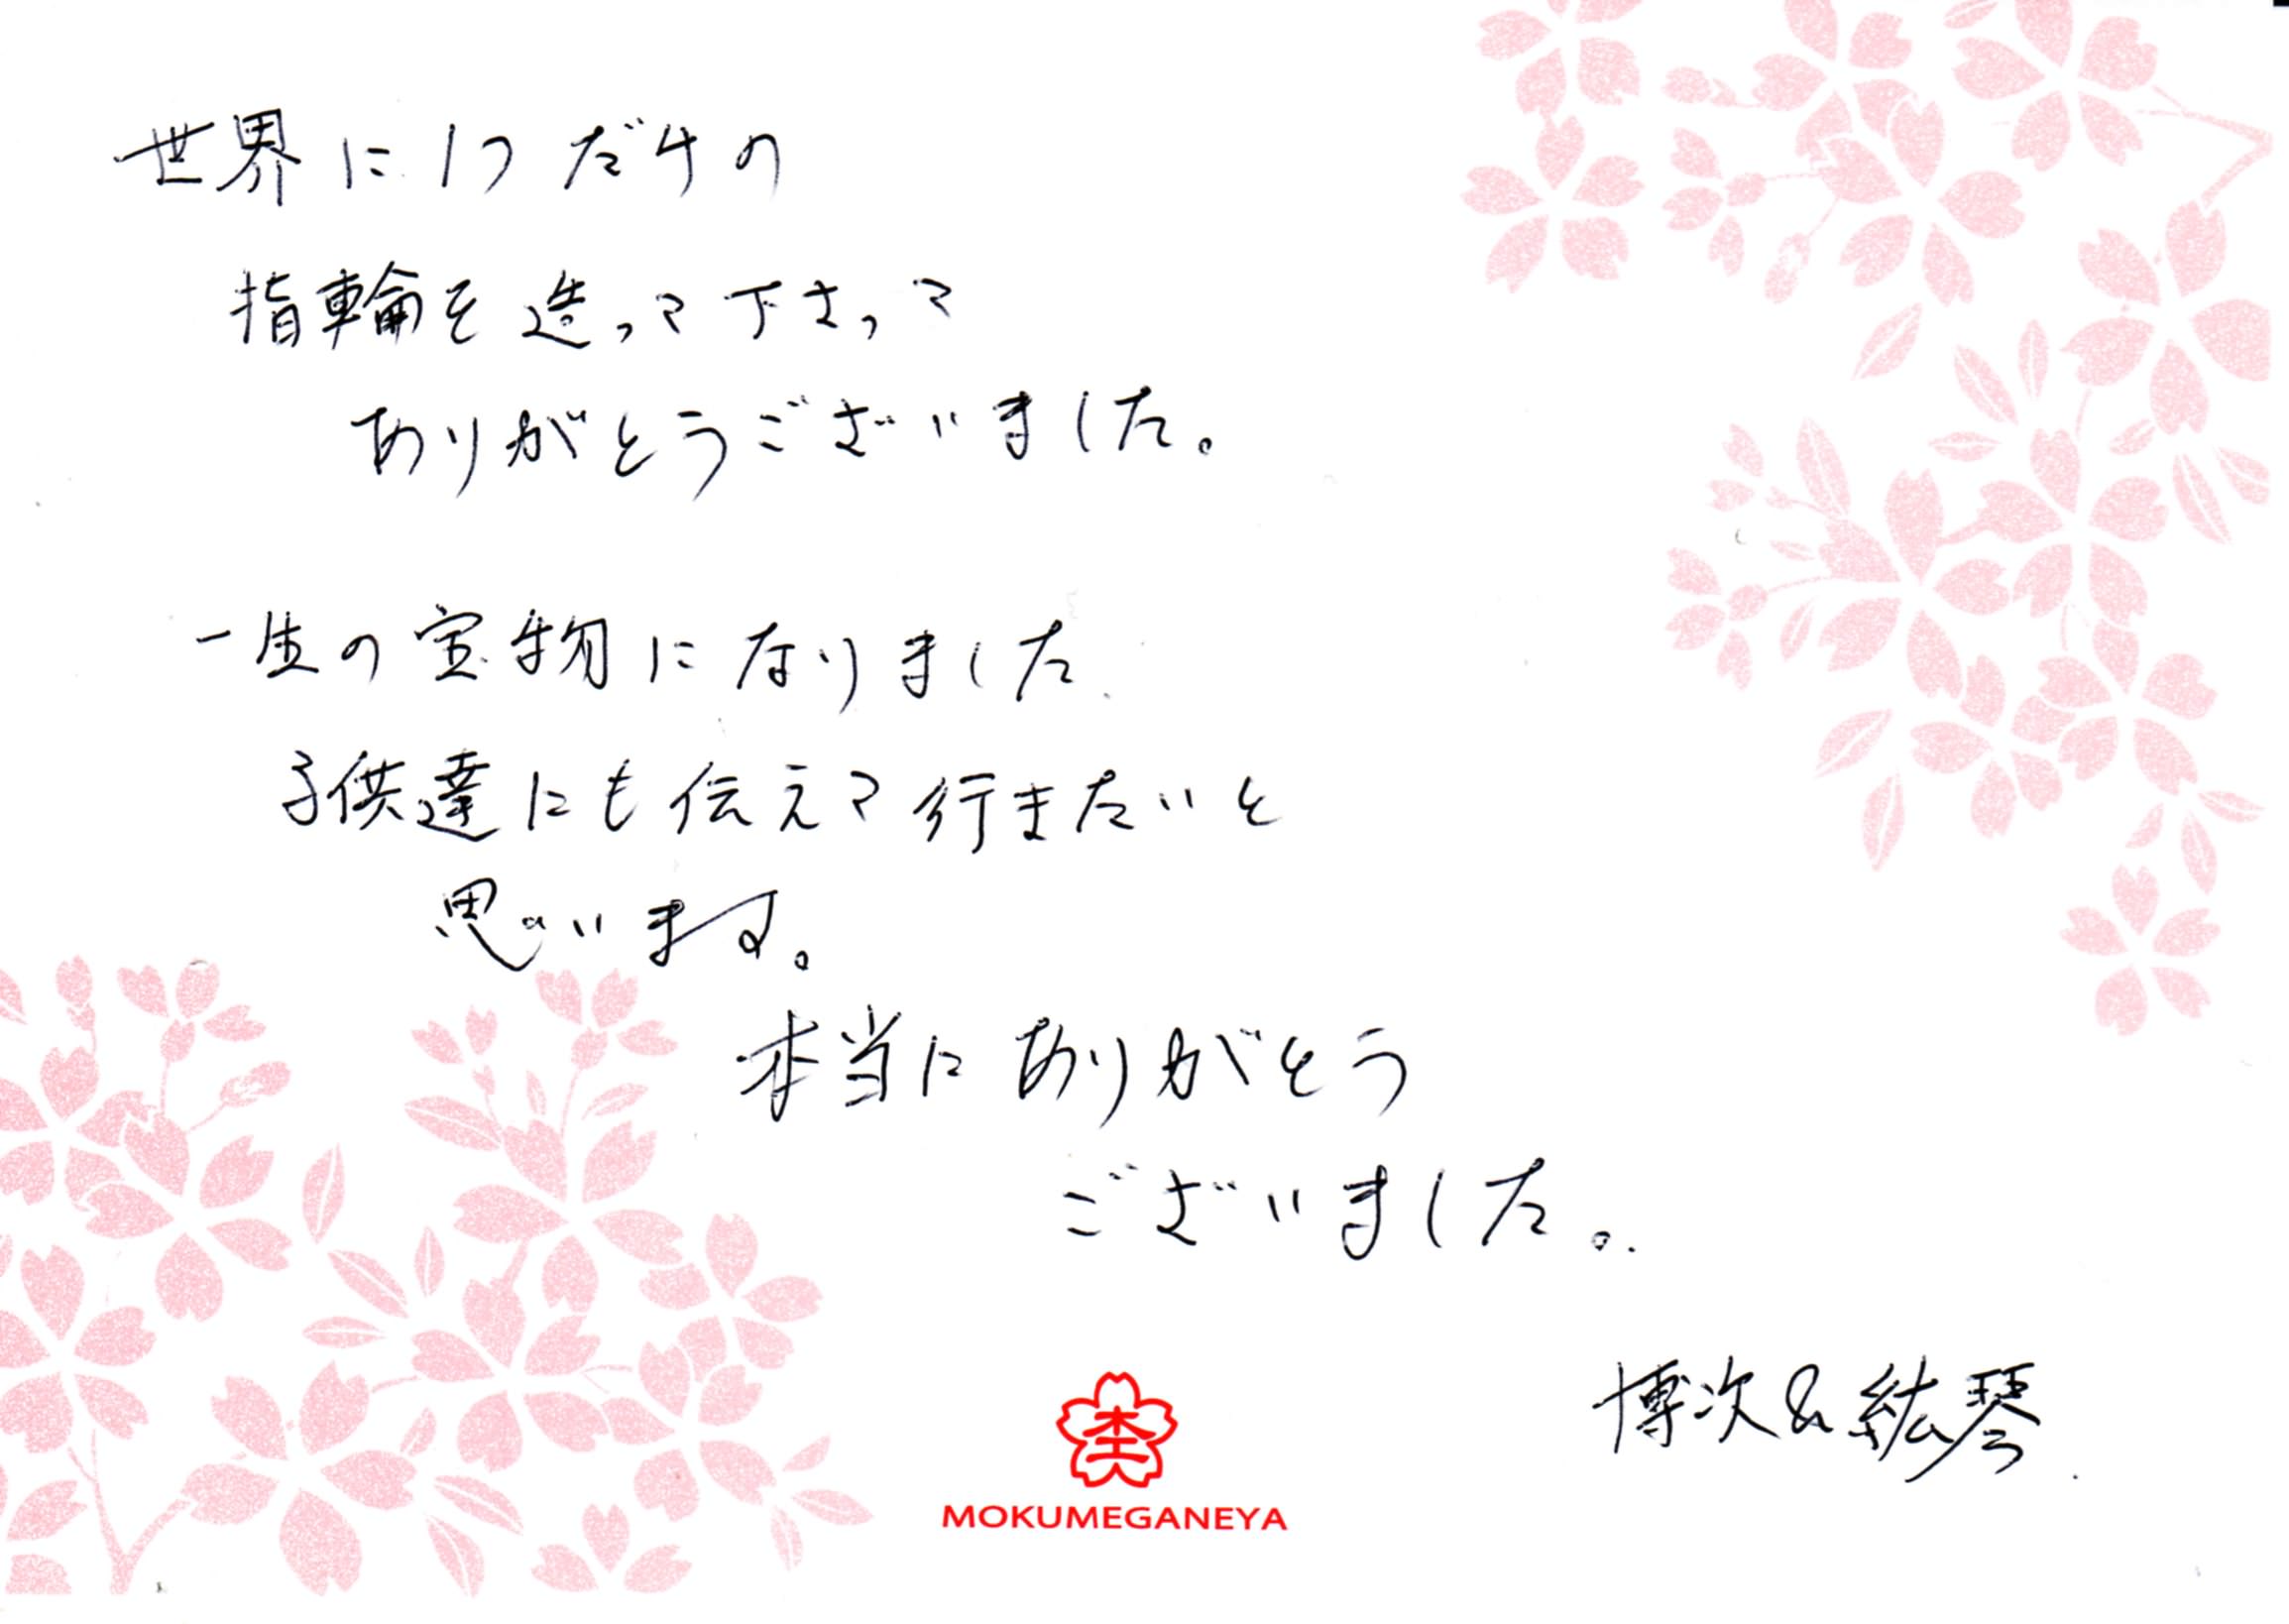 世界に1つだけの
指輪を造って下さって
ありがとうございました。
一生の宝物になりました
子供達にも伝えて行きたいと
思います。
本当にありがとう
ございました。
博次&紘琴
MOKUMEGANEYA